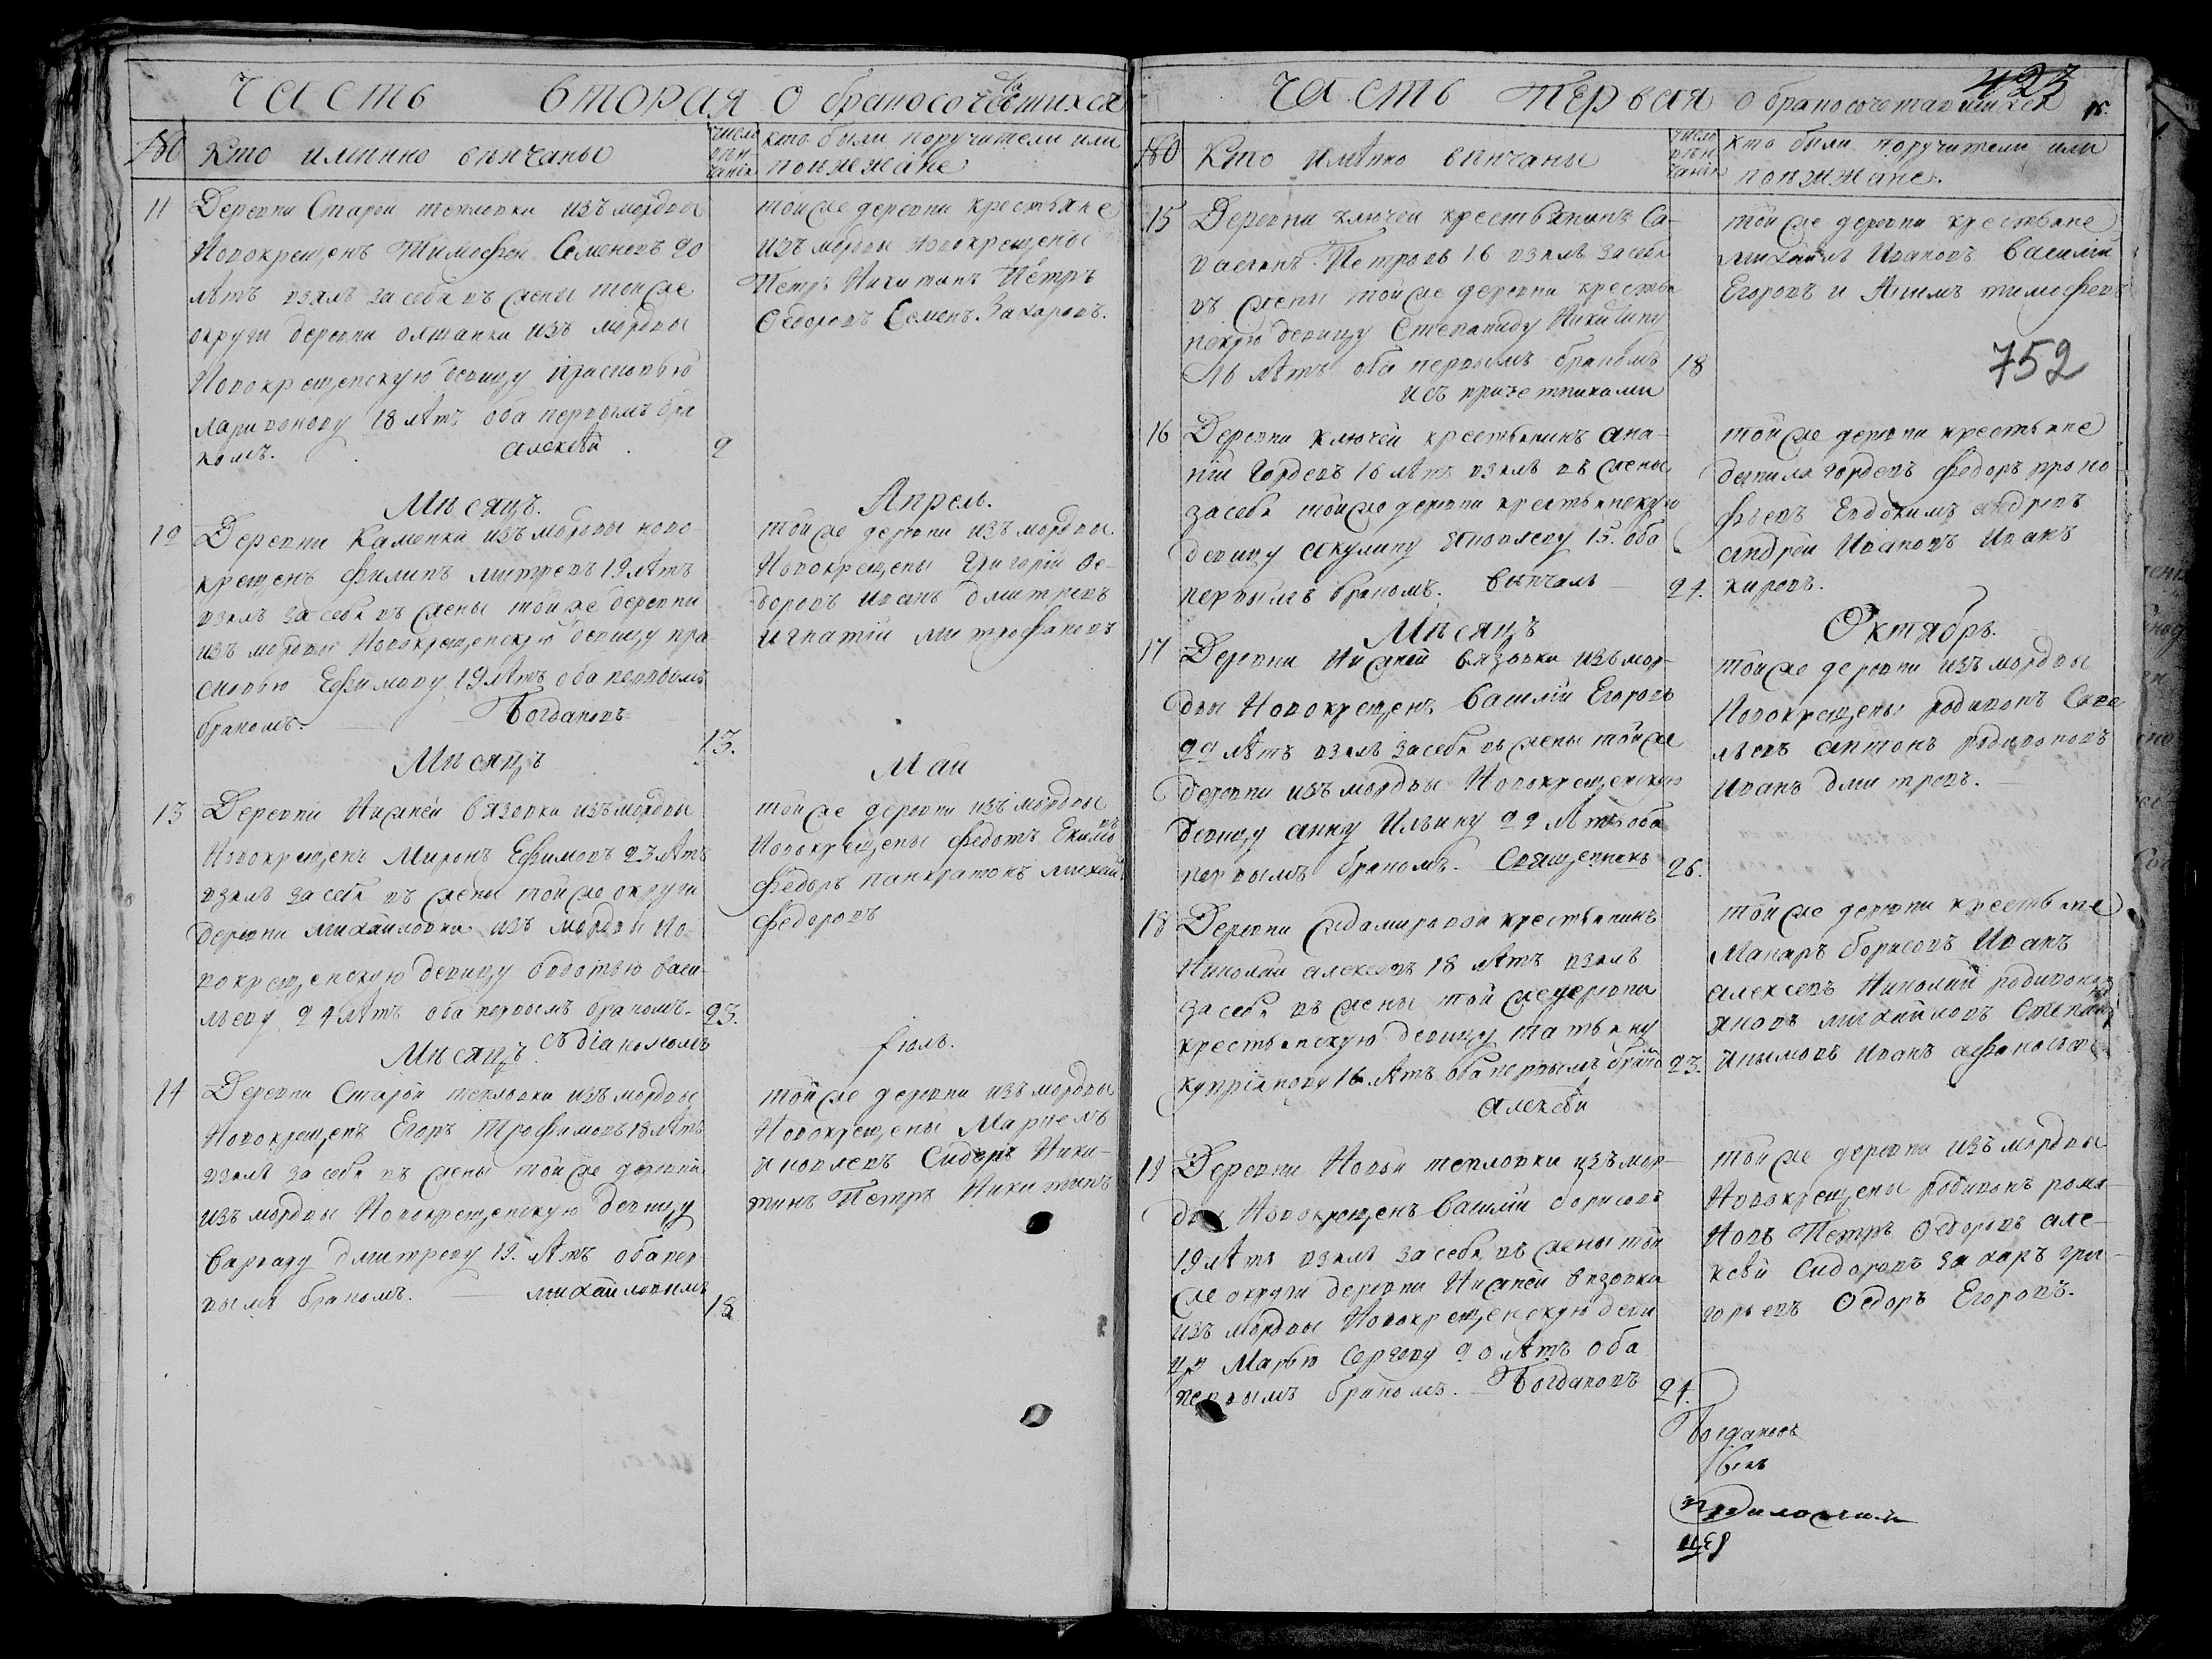 Часть вторая о бракосочетавшихся
№ Кто имянно венчаны
число вѣнчанія
кто были поручители или
поѣжжане
11 Деревни Старой тепловки изъ мордвы
Новокрещенъ Тимофей Семеновъ 20
лѣтъ взялъ за себя въ жены тойже
округи деревни олшанки изъ мордвы
Новокрещенскую девицу
Ларивонову 18 лѣтъ оба первымъ бра
комъ. алексѣй 2
тойже деревни крестьяне
изъ мордвы новокрещены
Петръ Никитинъ Петръ
Федоровъ Семенъ Захаровъ.
Мѣсяцъ. Апрель.
12 Деревни Каменки изъ мордвы ново
крещенъ Филипъ митревъ 19 лѣтъ
взялъ за себя въ жены тойже деревни
изъ мордвы Новокрещенскую девицу пра
сковью Ефимову 19 лѣтъ оба первымъ
бракомъ. Богдановъ 13.
тойже деревни изъ мордвы
Новокрещены Григорій Фе-
доровъ Иванъ дмитревъ
игнатій митрофановъ
Мѣсяцъ Маи
13 Деревни Нижней вязовки изъ мордвы
Новокрещенъ Миронъ Ефимовъ 23 лѣтъ
взялъ за себя въ жены тойже округи
деревни михайловки изъ мордвы Но
вокрещенскую девицу Васи
льеву 24 лѣтъ оба первымъ бракомъ. 23.
съ діакономъ
тойже деревни изъ мордвы
Новокрещены федотъ Екимовъ
федоръ панкратовъ михайл
федоровъ
Мѣсяцъ Іюль.
14 Деревни Старой тепловки изъ мордвы
Новокрещенъ Егоръ Трофимовъ 18 лѣтъ
взялъ за себя въ жены тойже деревни
изъ мордвы Новокрещенскую девицу
Варвару дмитреву 19. лѣтъ оба пер-
вымъ бракомъ. михайловымъ 18
тойже деревни изъ мордвы
Новокрещены Маркелъ
яковлевъ Сидоръ Ники-
тинъ Петръ Никитинъ
Часть первая о бракосочетавшихся
423 15.
№ Кто имянно венчаны
число вѣнчанія
кто были поручители или
поѣжжане.
15 Деревни ключей крестьянинъ Са-
Петровъ 16 взялъ за себя
въ жены тойже деревни крестья
нскую девицу Степаниду Никитину
16 лѣтъ оба первымъ бракомъ 18
Изъ причетниками
тойже деревни крестьяне
михайлъ Ивановъ василій
Егоровъ и Акимъ тимофеевъ
752
16 Деревни ключей крестьянинъ ана-
ній Гордевъ 16 лѣтъ взялъ въ жены
за себя тойже деревни крестьянскую
девицу акулину яковлеву 15. оба
первымъ бракомъ. Вѣнчалъ 24.
тойже деревни крестьяне
данила гордевъ федоръ проко-
фьевъ Евдокимъ андревъ
андрей Ивановъ Иванъ
карповъ.
Мѣсяцъ Октябрь.
17 Деревни Нижней вязовки изъ мор-
двы Новокрещенъ василій Егоровъ
22 лѣтъ взялъ за себя въ жены тойже
деревни изъ мордвы Новокрещенскую
девицу анну Ильину 22 лѣтъ оба
первымъ бракомъ. Священникъ 26.
тойже деревни изъ мордвы
Новокрещены родивонъ Саве
льевъ антонъ родивоновъ
Иванъ дмитревъ.
18 Деревни крестьянинъ
Николай алексеевъ 18 лѣтъ взялъ
за себя въ жены тойже деревни
крестьянскую девицу татьяну
купріанову 16 лѣтъ оба первымъ брако 23.
алексѣй
тойже деревни крестьяне
Макаръ борисовъ Иванъ
алексеевъ Николай родивоновъ
яковъ михайловъ Степанъ
Иванъ афанасьевъ
19 Деревни Новой тепловки изъ мор-
двы Новокрещенъ василій борисовъ
19 лѣтъ взялъ за себя въ жены той
же округи деревни Нижней вязовки
изъ мордвы Новокрещенскую деви
цу Марью Сергеву 20 лѣтъ оба
первымъ бракомъ. Богдановъ 24.
тойже деревни изъ мордвы
Новокрещены родивонъ рома-
новъ Петръ Федоровъ але-
ксѣй Сидоровъ Захаръ гри-
горьевъ Федоръ Егоровъ.
Богдановъ